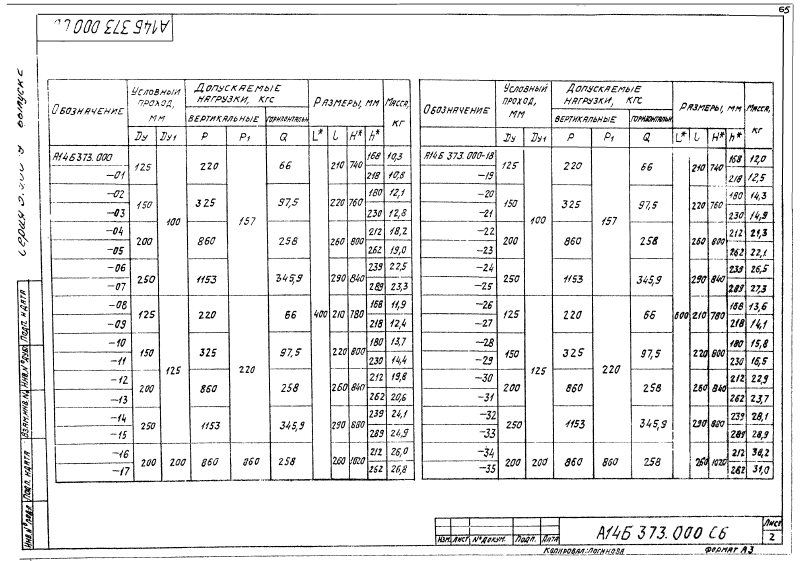 65
А14Б 373 000 СБ
Серия 5.000-9 выпуск 2
Обозначение | Условный проход, мм Dу | Dу1 | Допускаемые нагрузки, кгс вертикальные P | P1 | горизонтальн Q | Размеры, мм L* | l | H* | h* | Масса, кг
А14Б 373.000 | 125 | 100 | 220 | 157 | 66 | 400 | 210 | 740 | 168 | 10,3
-01 | 218 | 10,8
-02 | 150 | 325 | 97,5 | 220 | 760 | 180 | 12,1
-03 | 230 | 12,8
-04 | 200 | 860 | 258 | 260 | 800 | 212 | 18,2
-05 | 262 | 19,0
-06 | 250 | 1153 | 345,9 | 290 | 840 | 239 | 22,5
-07 | 289 | 23,3
-08 | 125 | 125 | 220 | 220 | 66 | 210 | 780 | 168 | 11,9
-09 | 218 | 12,4
-10 | 150 | 325 | 97,5 | 220 | 800 | 180 | 13,7
-11 | 230 | 14,4
-12 | 200 | 860 | 258 | 260 | 840 | 212 | 19,8
-13 | 262 | 20,6
-14 | 250 | 1153 | 345,9 | 290 | 880 | 239 | 24,1
-15 | 289 | 24,9
-16 | 200 | 200 | 860 | 860 | 258 | 260 | 1020 | 212 | 26,0
-17 | 262 | 26,8
Обозначение | Условный проход, мм Dу | Dу1 | Допускаемые нагрузки, кгс вертикальные P | P1 | горизонтальн Q | Размеры, мм L* | l | H* | h* | Масса, кг
А14Б 373.000-18 | 125 | 100 | 220 | 157 | 66 | 800 | 210 | 740 | 168 | 12,0
-19 | 218 | 12,5
-20 | 150 | 325 | 97,5 | 220 | 760 | 180 | 14,3
-21 | 230 | 14,9
-22 | 200 | 860 | 258 | 260 | 800 | 212 | 21,3
-23 | 262 | 22,1
-24 | 250 | 1153 | 345,9 | 290 | 840 | 239 | 26,5
-25 | 289 | 27,3
-26 | 125 | 125 | 220 | 220 | 66 | 210 | 780 | 168 | 13,6
-27 | 218 | 14,1
-28 | 150 | 325 | 97,5 | 220 | 800 | 180 | 15,8
-29 | 230 | 16,5
-30 | 200 | 860 | 258 | 260 | 840 | 212 | 22,9
-31 | 262 | 23,7
-32 | 250 | 1153 | 345,9 | 290 | 880 | 239 | 28,1
-33 | 289 | 28,9
-34 | 200 | 200 | 860 | 860 | 258 | 260 | 1020 | 212 | 30,2
-35 | 262 | 31,0
Инв.№ подл. Подп. и дата Взам.инв.№ Инв.№ дубл. Подп. и дата
Изм. Лист № докум. Подп. Дата
А14Б 373.000 СБ
Лист
2
Копировал: Логинова
Формат А3